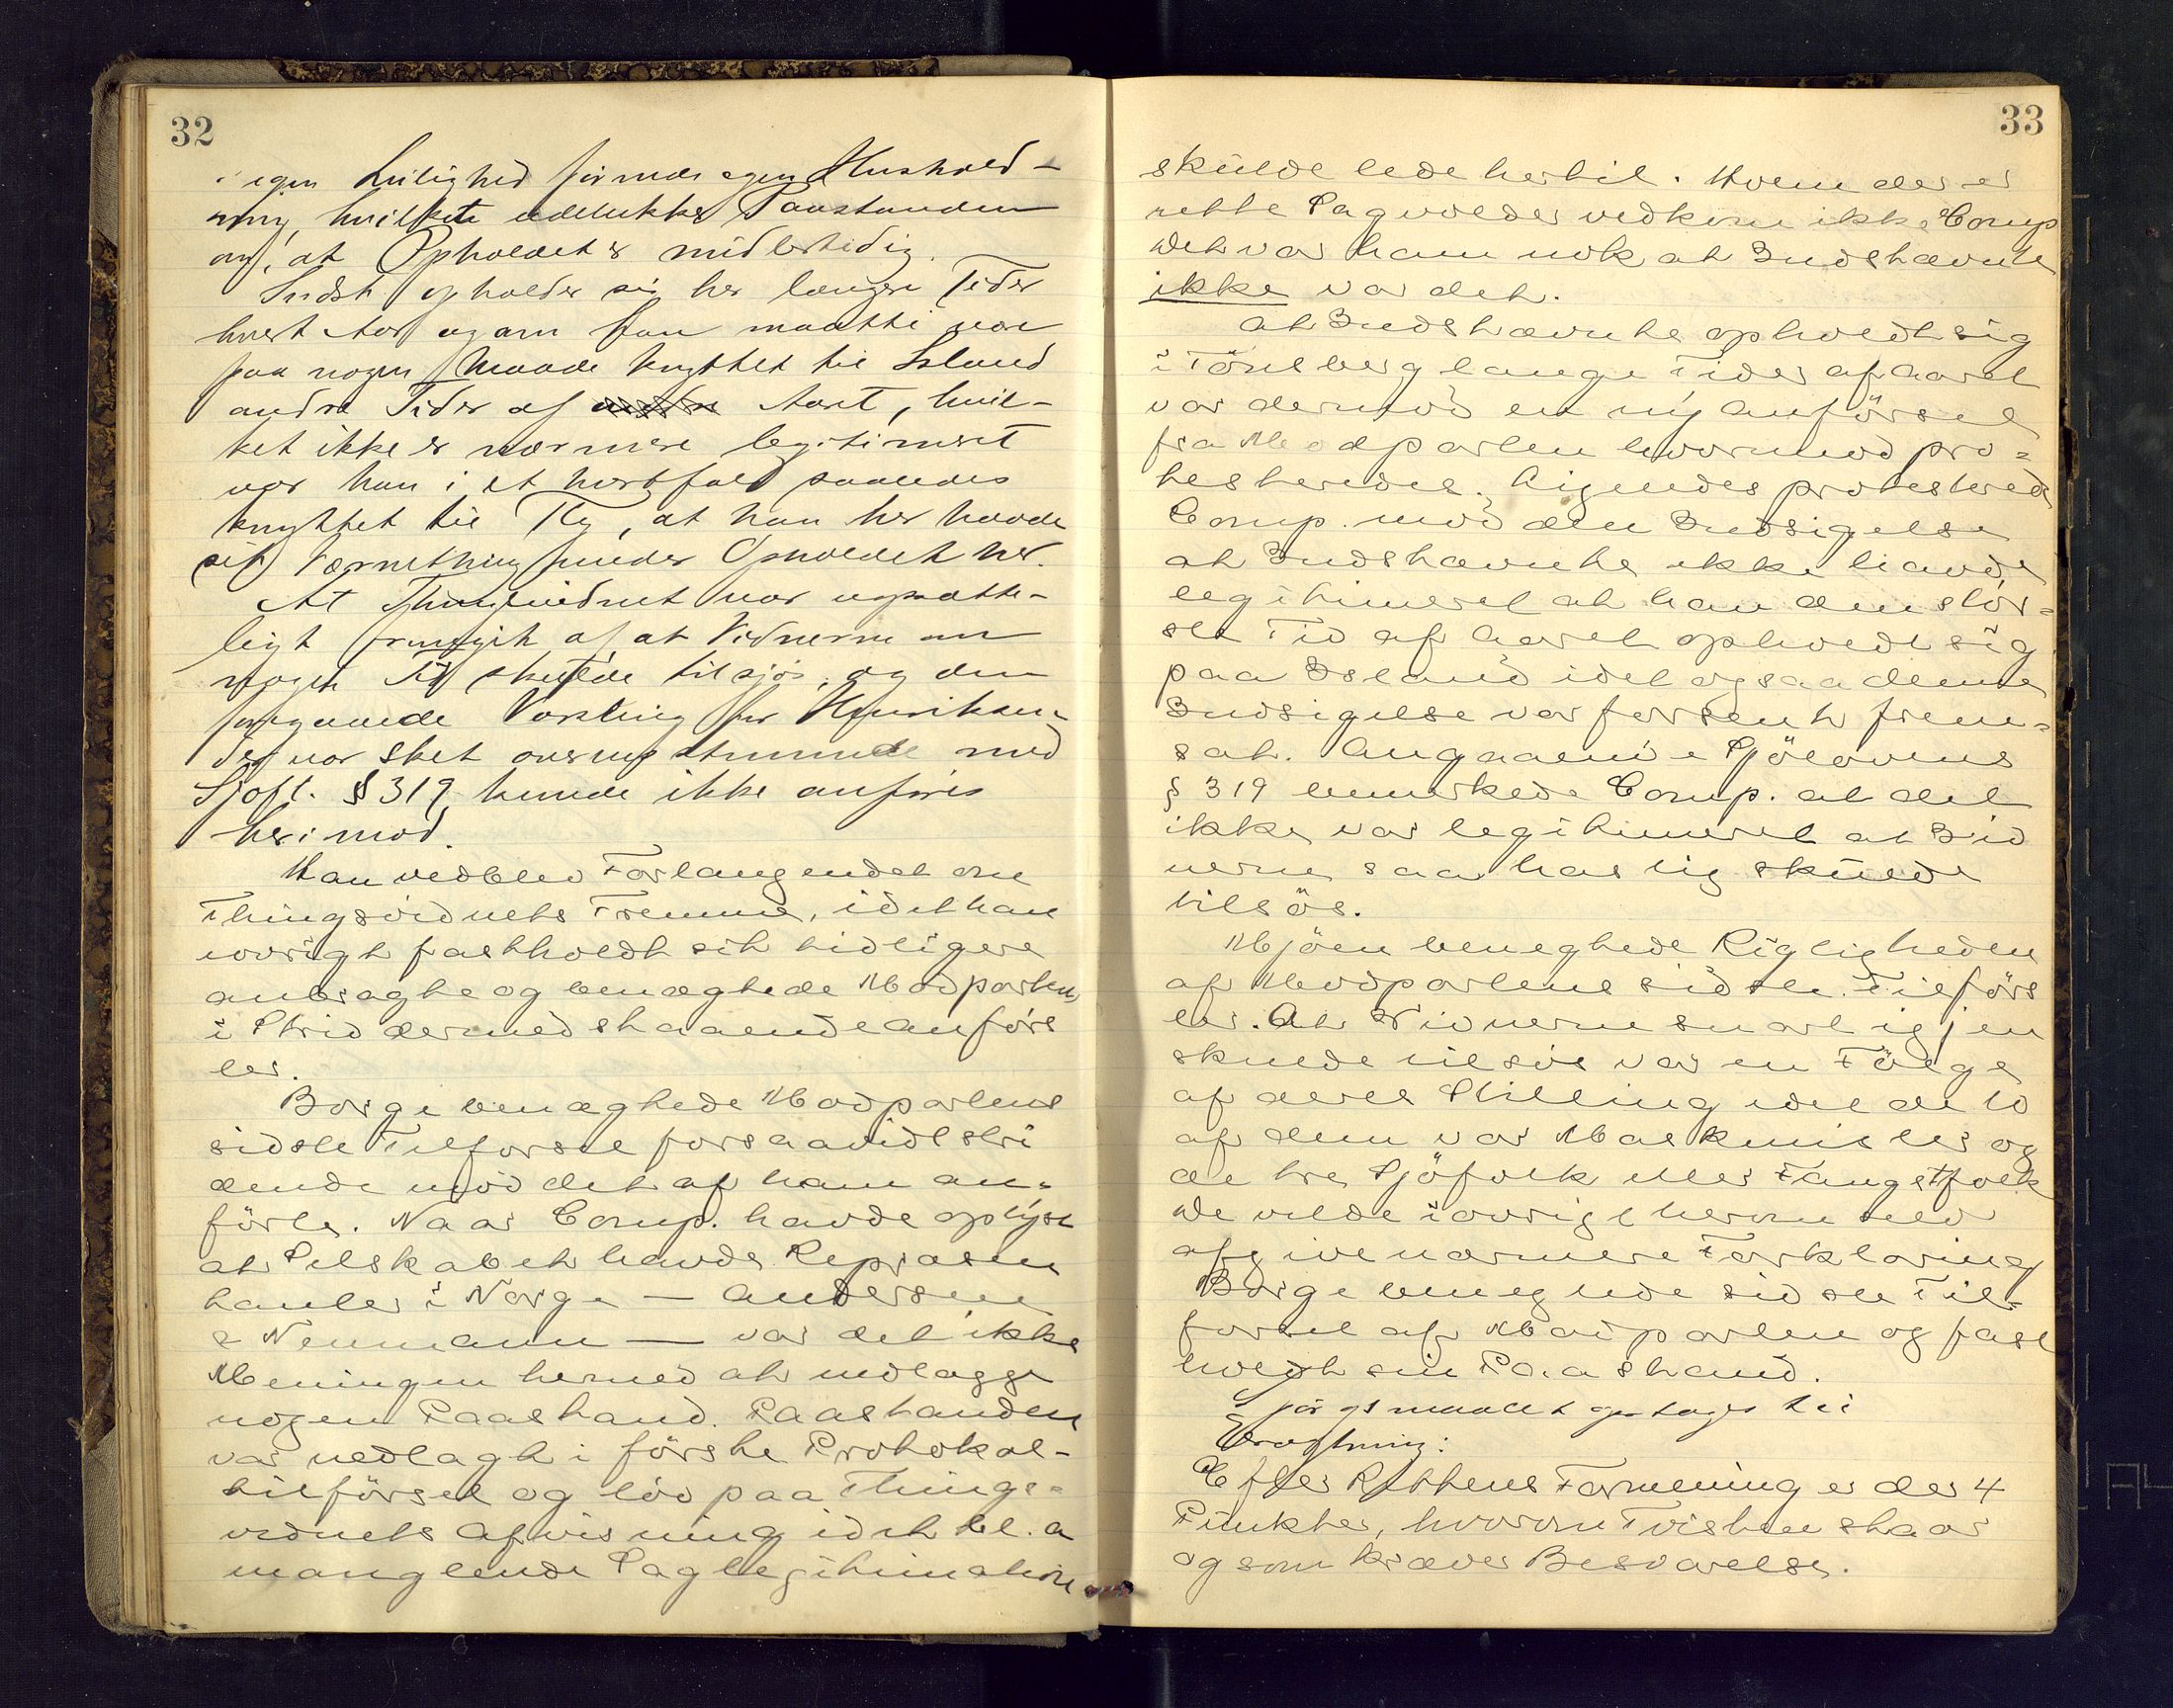 32
egen Leilighed förende egen Hushold-
ning, hvilket udelukker Paastanden
om, at Opholdet er midlertidig.
Indst. opholder sig her længere Tider
hvert Aar og om han maatte være
paa nogen Maade knyttet til Island
andre Tider af Aaret, hvil-
ket ikke er nærmere legitimeret
var han i et hvert fald saaledes
knyttet til Tbg, at han her havde
sit Værnething under Opholdet her.
At Thingsvidnet var uopsætte-
ligt fremgik af at Vidnerne om
nogen Tid skulde tilsjøs, og den
foregaaende Varsling for Henriksen
der var sket overensstemmende med
Sjøfl. § 319 kunde ikke anføres
herimod.
Han vedblev Forlangendet om
Thingsvidnets Fremme, idet han
iøvrigt fastholdt sit tidligere
anbragte og benægtede Modpartens
i Strid dermed staaende anförs
ler.
Borge benægtede Modpartens
sidste Tilførsel forsaavidt stri
dende mod det af ham an-
førte. Naar Comp. havde oplyst
at Selskabet havde Repræsen
tanter i Norge — Andersen
& Neumann — var det ikke
Meningen hermed at nedlægge
nogen Paastand. Paastanden
var nedlagt i förste Protokol-
tilförsel og löd paa Things-
vidnets Afvisning idet bl. a
manglende Saglegitimation
33
skulde lede hertil. Hvem der er
rette Sagvolder vedkom ikke Comp
det var ham nok at Indstævnte
ikke var det.
At Indstævnte opholdt sig
i Tönsberg lange Tider af Aaret
var dermod en ny Anförsel
fra Modparten hvormod pro=
testeredes. Ligeledes protesterede
Comp. mod den Indsigelse
at Indstævnte ikke havde
legitimeret at han den stör=
ste Tid af Aaret opholdt sig
paa Island idet ogsaa denne
Indsigelse var forsent frem=
sat. Angaaende Sjölovens
§ 319 bemerkede Comp. at det
ikke var legitimeret at Vid
nerne saa hastig skulde
tilsös.
Mjöen benegtede Rigtigheden
af Modpartens sidste Tilförs
ler. At Vidnerne snart igjen
skulde tilsös var en Fölge
af deres Stilling idet de to
af dem var Maskinister og
de tre Sjöfolk eller Fangstfolk
De vilde iövrigt herom selv
afgive nærmere Forklaring
Borge benegtede sidste Til=
førsel af Modparten og fast
holdt sin Paastand.
Spörgsmaalet optages til
Eragtning:
Efter Rettens Formening er der 4
Punkter, hvorom Tvisten staar
og som kræver Besvarelse.